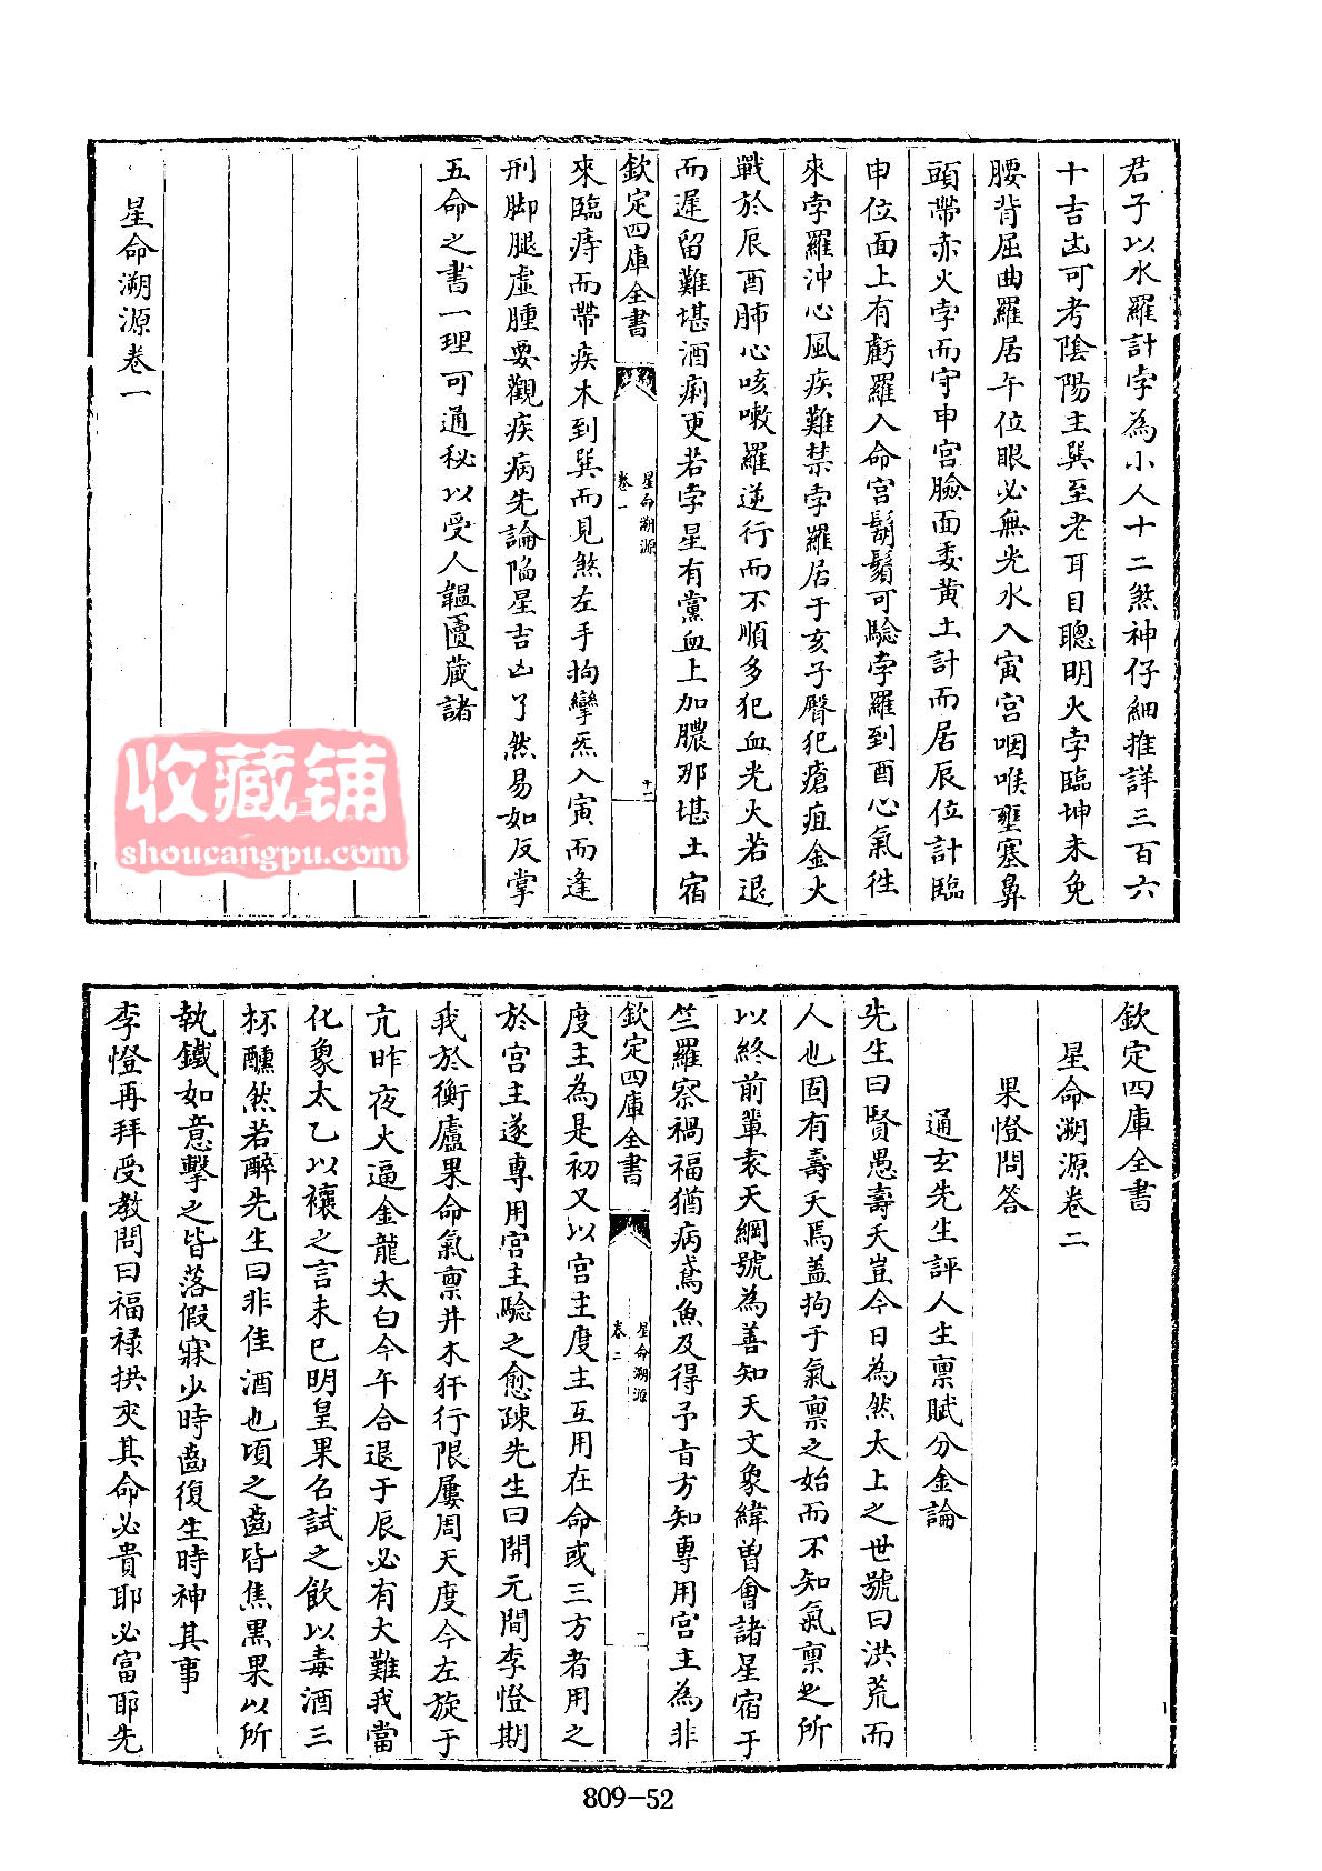 君子以水羅計孛為小人十二煞神仔細推詳三百六
十吉凶可考陰陽主巽至老耳目聰明火孛臨坤未免
腰背屈曲羅居午位眼必無光水入寅宮咽喉壅塞鼻
頭帶赤火孛而守申宮臉面委黄土計而居辰位計臨
申位面上有虧羅入命宮鬍鬚可驗孛羅到酉心氣徃
來孛羅沖心風疾難禁孛羅居于亥子臀犯瘡疽金火
戰於辰酉肺心咳嗽羅逆行而不順多犯血光火若退
而遲留難堪酒痢更若孛星有黨血上加膿那堪土宿
欽定四庫全書
星命溯源
卷一
十二
來臨痔而帶疾木到巽而見煞左手拘攣炁入寅而逢
刑脚腿虛腫要觀疾病先論陷星吉凶了然易如反掌
五命之書一理可通秘以受人韞匵藏諸
星命溯源卷一
收藏铺
shoucangpu.com
欽定四庫全書
星命溯源卷二
果燈問答
通玄先生評人生禀賦分金論
先生曰賢愚壽夭豈今日為然太上之世號曰洪荒而
人也固有壽夭焉盖拘于氣禀之始而不知氣禀之所
以終前輩袁天綱號為善知天文象緯曽會諸星宿于
竺羅察禍福猶病鳶魚及得予旨方知專用宮主為非
欽定四庫全書
星命溯源
卷二
一
度主為是初又以宮主度主互用在命或三方者用之
於宮主遂專用宮主驗之愈疎先生曰開元間李燈期
我於衡廬果命氣禀井木犴行限屢周天度今左旋于
亢昨夜火逼金龍太白今午合退于辰必有大難我當
化象太乙以禳之言未已明皇果名試之飲以毒酒三
杯醺然若醉先生曰非佳酒也頃之齒皆焦黒果以所
執鐵如意擊之皆落假寐少時齒復生時神其事
李燈再拜受教問曰福禄拱夾其命必貴耶必富耶先
809-52